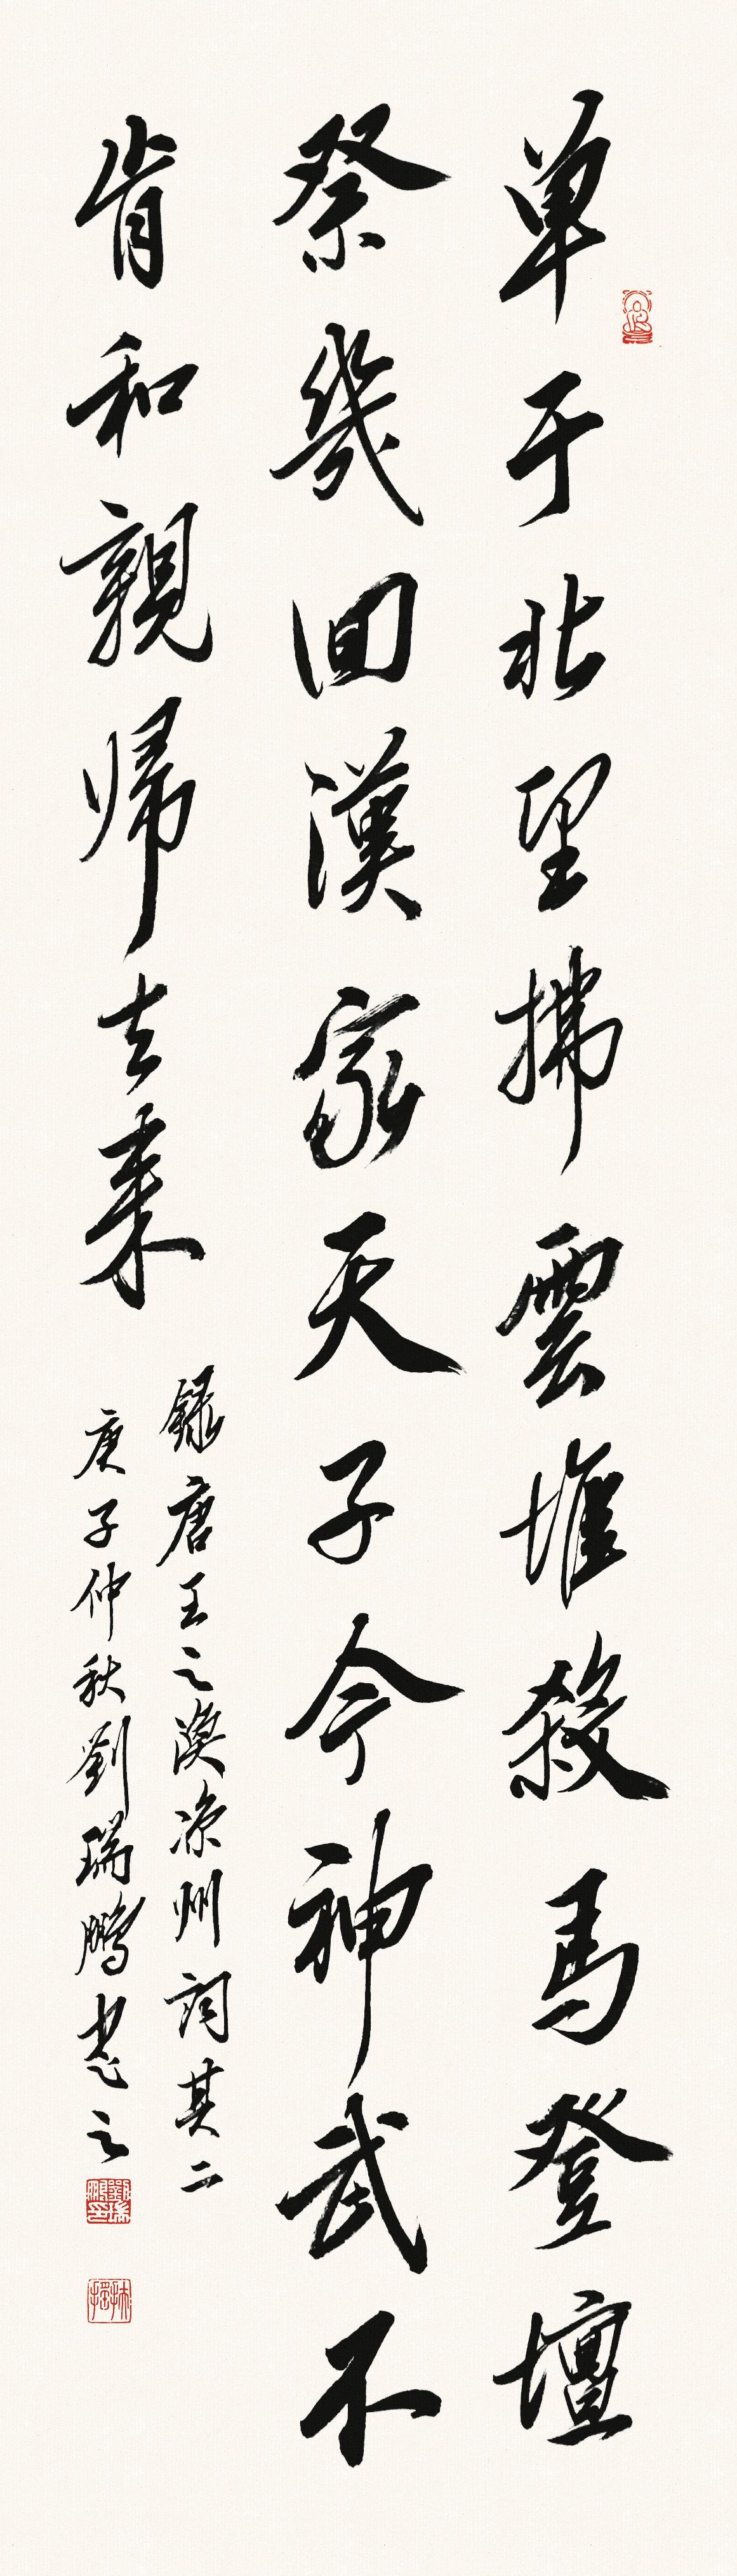 单于北望拂雲堆殺馬登壇
祭幾回漢家天子今神武不
肯和親歸去来
録唐王之渙涼州詞其二
庚子仲秋劉瑞鵬書之
劉瑞鵬印